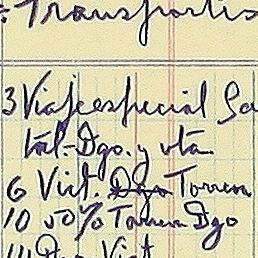 Transportes
3 Viaje especial Sa
tal. Dgo. y vta
6 Vict. Dgo Torreon
10 50% Torreon Dgo
11 Dgo Vict